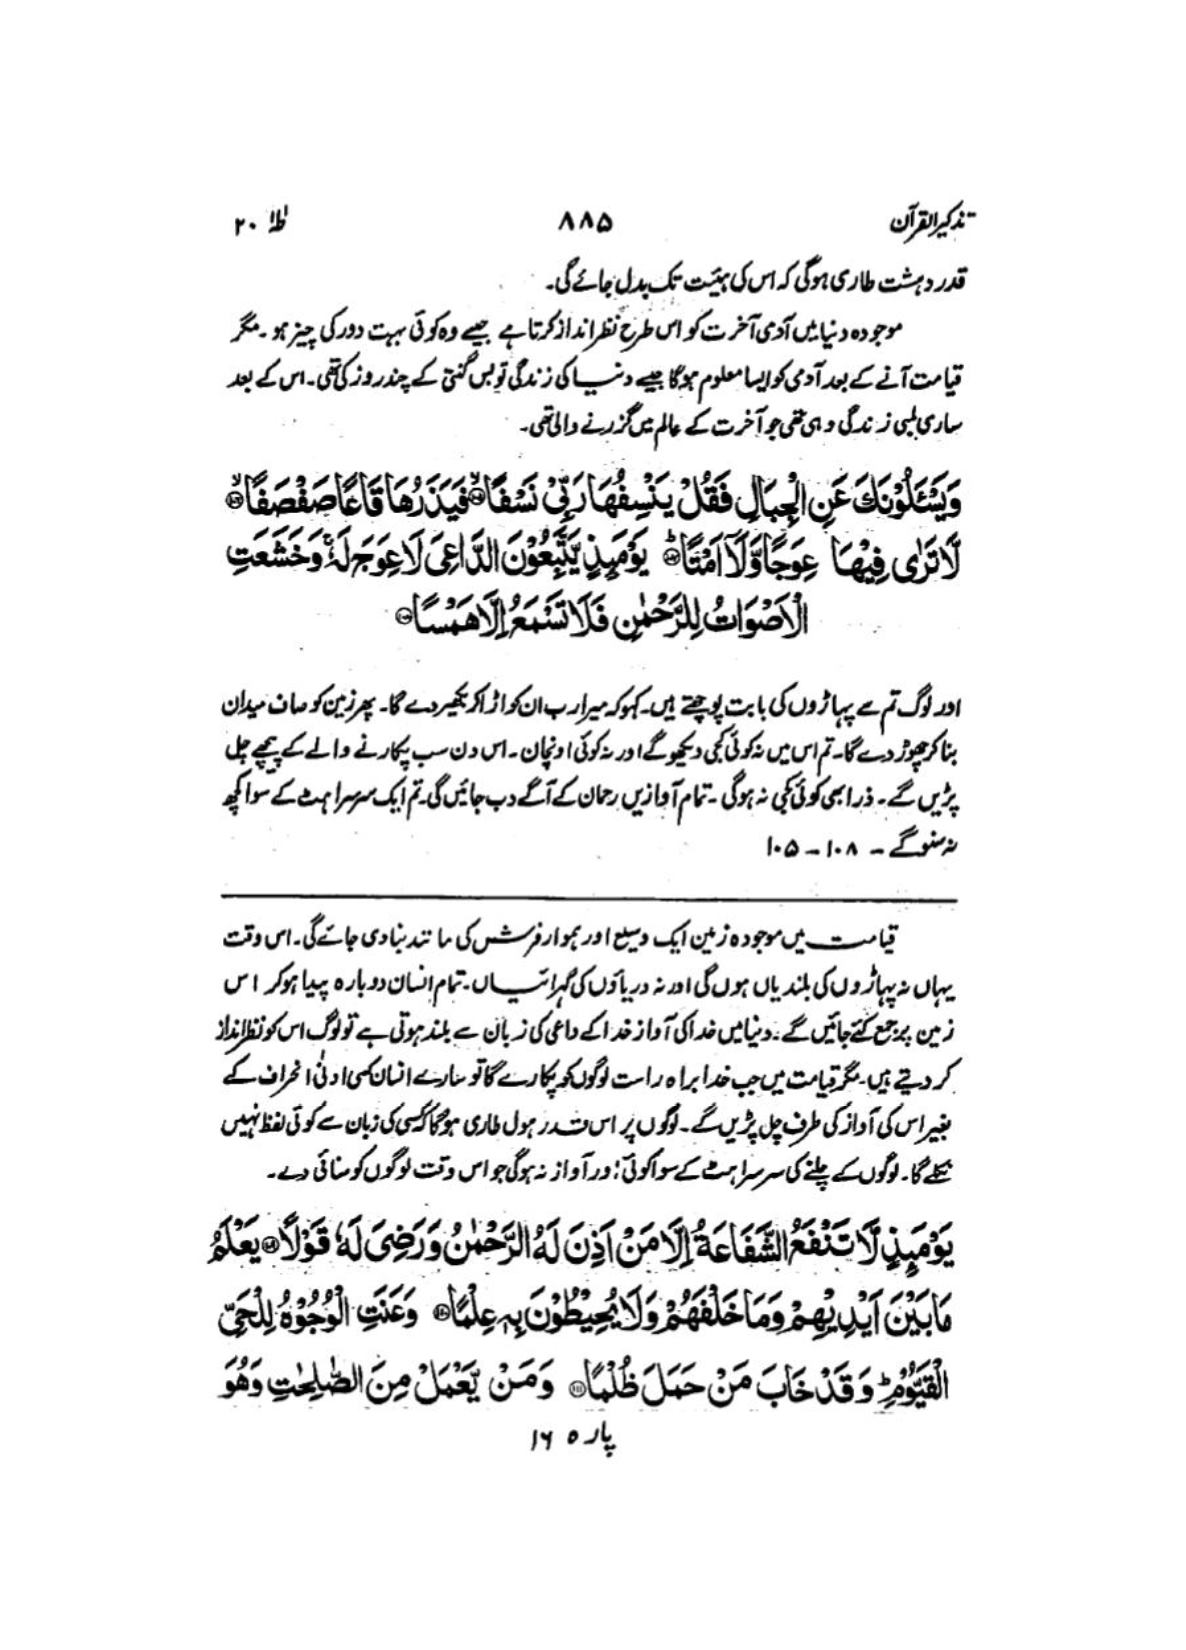 تذکیر القرآن ۸۸۵ طٰہٰ ۲۰
قدر دہشت طاری ہوگی کہ اس کی ہیئت تک بدل جائے گی۔
موجودہ دنیا میں آدمی آخرت کو اس طرح نظر انداز کرتا ہے جیسے وہ کوئی بہت دور کی چیز ہو۔ مگر
قیامت آنے کے بعد آدمی کو ایسا معلوم ہوگا جیسے دنیا کی زندگی تو بس گنتی کے چند روز کی تھی۔ اس کے بعد
ساری لمبی زندگی وہی تھی جو آخرت کے عالم میں گزرنے والی تھی۔
وَيَسْـَٔلُوْنَكَ عَنِ الْجِبَالِ فَقُلْ يَنْسِفُهَا رَبِّيْ نَسْفًا ۙ۝۱۰۵ فَيَذَرُهَا قَاعًا صَفْصَفًا ۙ۝۱۰۶
لَّا تَرٰى فِيْهَا عِوَجًا وَّلَآ اَمْتًا ؕ۝۱۰۷ يَوْمَىِٕذٍ يَّتَّبِعُوْنَ الدَّاعِيَ لَا عِوَجَ لَهٗ ۚ وَخَشَعَتِ
الْاَصْوَاتُ لِلرَّحْمٰنِ فَلَا تَسْمَعُ اِلَّا هَمْسًا ۝۱۰۸
اور لوگ تم سے پہاڑوں کی بابت پوچھتے ہیں۔ کہو کہ میرا رب ان کو اڑا کر بکھیر دے گا۔ پھر زمین کو صاف میدان
بنا کر چھوڑ دے گا۔ تم اس میں نہ کوئی کجی دیکھو گے اور نہ کوئی اونچان۔ اس دن سب پکارنے والے کے پیچھے چل
پڑیں گے۔ ذرا بھی کوئی کجی نہ ہوگی۔ تمام آوازیں رحمان کے آگے دب جائیں گی۔ تم ایک سرسراہٹ کے سوا کچھ
نہ سنو گے ۔ ۱۰۸ ۔ ۱۰۵
قیامت میں موجودہ زمین ایک وسیع اور ہموار فرش کی مانند بنا دی جائے گی۔ اس وقت
یہاں نہ پہاڑوں کی بلندیاں ہوں گی اور نہ دریاؤں کی گہرائیاں۔ تمام انسان دوبارہ پیدا ہو کر اس
زمین پر جمع کئے جائیں گے۔ دنیا میں خدا کی آواز خدا کے داعی کی زبان سے بلند ہوتی ہے تو لوگ اس کو نظر انداز
کر دیتے ہیں۔ مگر قیامت میں جب خدا براہ راست لوگوں کو پکارے گا تو سارے انسان کسی ادنیٰ انحراف کے
بغیر اس کی آواز کی طرف چل پڑیں گے۔ لوگوں پر اس قدر ہول طاری ہوگا کہ کسی کی زبان سے کوئی لفظ نہیں
نکلے گا۔ لوگوں کے چلنے کی سرسراہٹ کے سوا کوئی اور آواز نہ ہوگی جو اس وقت لوگوں کو سنائی دے۔
يَوْمَىِٕذٍ لَّا تَنْفَعُ الشَّفَاعَةُ اِلَّا مَنْ اَذِنَ لَهُ الرَّحْمٰنُ وَرَضِيَ لَهٗ قَوْلًا ۝۱۰۹ يَعْلَمُ
مَا بَيْنَ اَيْدِيْهِمْ وَمَا خَلْفَهُمْ وَلَا يُحِيْطُوْنَ بِهٖ عِلْمًا ۝۱۱۰ وَعَنَتِ الْوُجُوْهُ لِلْحَيِّ
الْقَيُّوْمِ ؕ وَقَدْ خَابَ مَنْ حَمَلَ ظُلْمًا ۝۱۱۱ وَمَنْ يَّعْمَلْ مِنَ الصّٰلِحٰتِ وَهُوَ
پارہ ۱۶